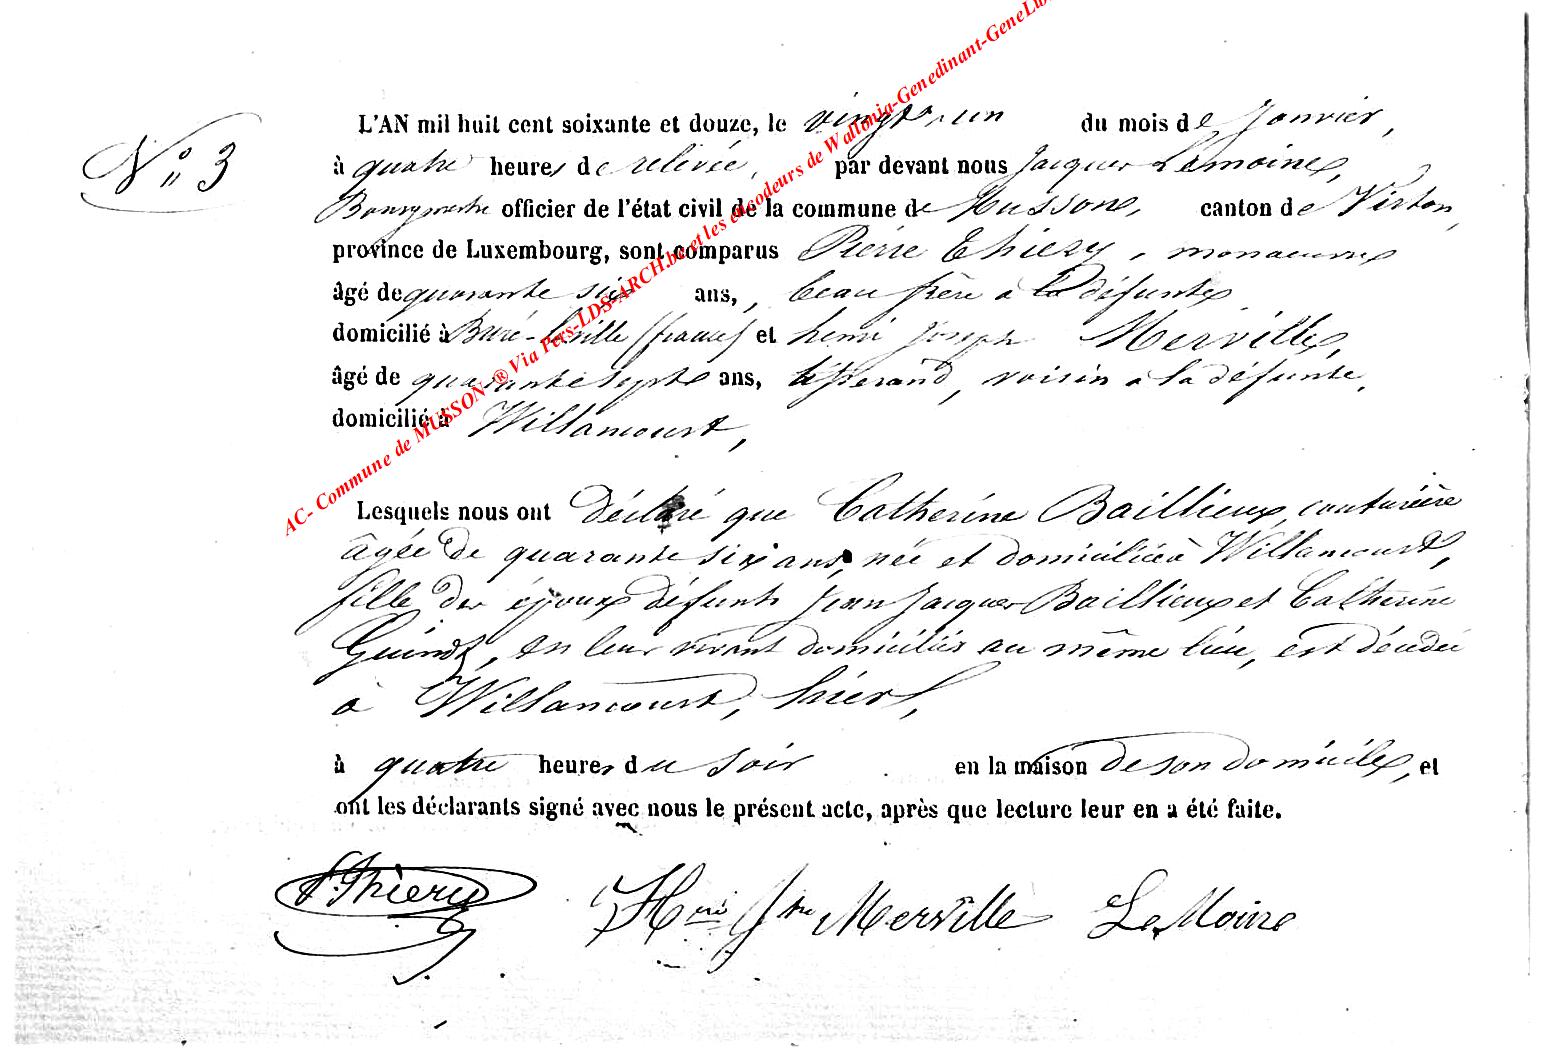 AC- Commune de MUSSON ® Via Pers-LDS-ARCH.be et les encodeurs de Wallonia-Genedinant-GeneLux
L'AN mil huit cent soixante et douze, le vingt-un du mois de Janvier,
N° 3
à quatre heures de relevée, par devant nous Jacques Lemoine,
Bourgmestre officier de l'état civil de la commune de Musson, canton de Virton,
province de Luxembourg, sont comparus Pierre Thiery, manoeuvre
âgé de quarante six ans, beau frère à la défunte
domicilié à Buré-la-ville (france) et henri Joseph Merville,
âgé de quarante sept ans, tisserand, voisin à la défunte,
domicilié à Willancourt,
Lesquels nous ont déclaré que Catherine Baillieux, couturière
âgée de quarante six ans, née et domiciliée à Willancourt,
fille des époux défunts Jean Jacques Baillieux et Catherine
Guindt, en leur vivant domiciliés au même lieu, est décédée
à Willancourt, hier,
à quatre heures du soir en la maison de son domicile, et
ont les déclarants signé avec nous le présent acte, après que lecture leur en a été faite.
P. Thiery Hri Jph Merville LeMoine